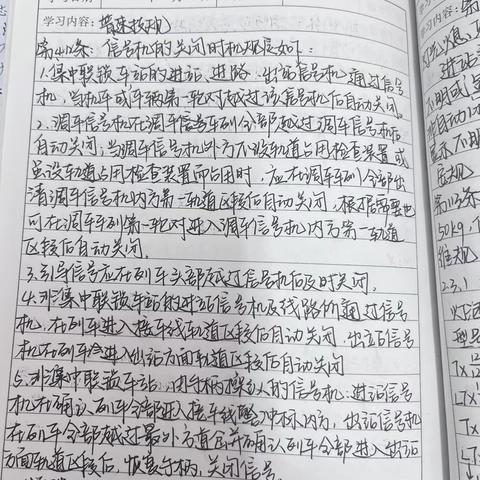 学习内容：普速技规
第410条：信号机的关闭时机规定如下：
1.集中联锁车站的进站、进路、出站信号机、通过信号
机，当机车或车辆第一轮对越过该信号机后自动关闭。
2.调车信号机在调车信号车列全部越过调车信号机后
自动关闭；当调车信号机外方不设轨道占用检查装置或
虽设轨道占用检查装置而占用时，应在调车车列全部出
清调车信号机内方第一轨道区段后自动关闭，根据需要也
可在调车车列第一轮对进入调车信号机内方第一轨道
区段后自动关闭。
3.引导信号应在列车头部越过信号机后及时关闭。
4.非集中联锁车站的进站信号机及线路所通过信号
机，在列车进入接车线轨道区段后自动关闭，出站信号
机在列车进入出站方面轨道区段后自动关闭
5.非集中联锁车站，由手柄操纵的信号机：进站信号
机在确认列车全部进入接车线警冲标内方，出站信号机
在列车全部越过最外方道岔并确认列车全部进入出站
方面轨道区段后，恢复手柄，关闭信号。
学习内容：
进站
不明或
显示不明
第113条
50kg
2.3.1